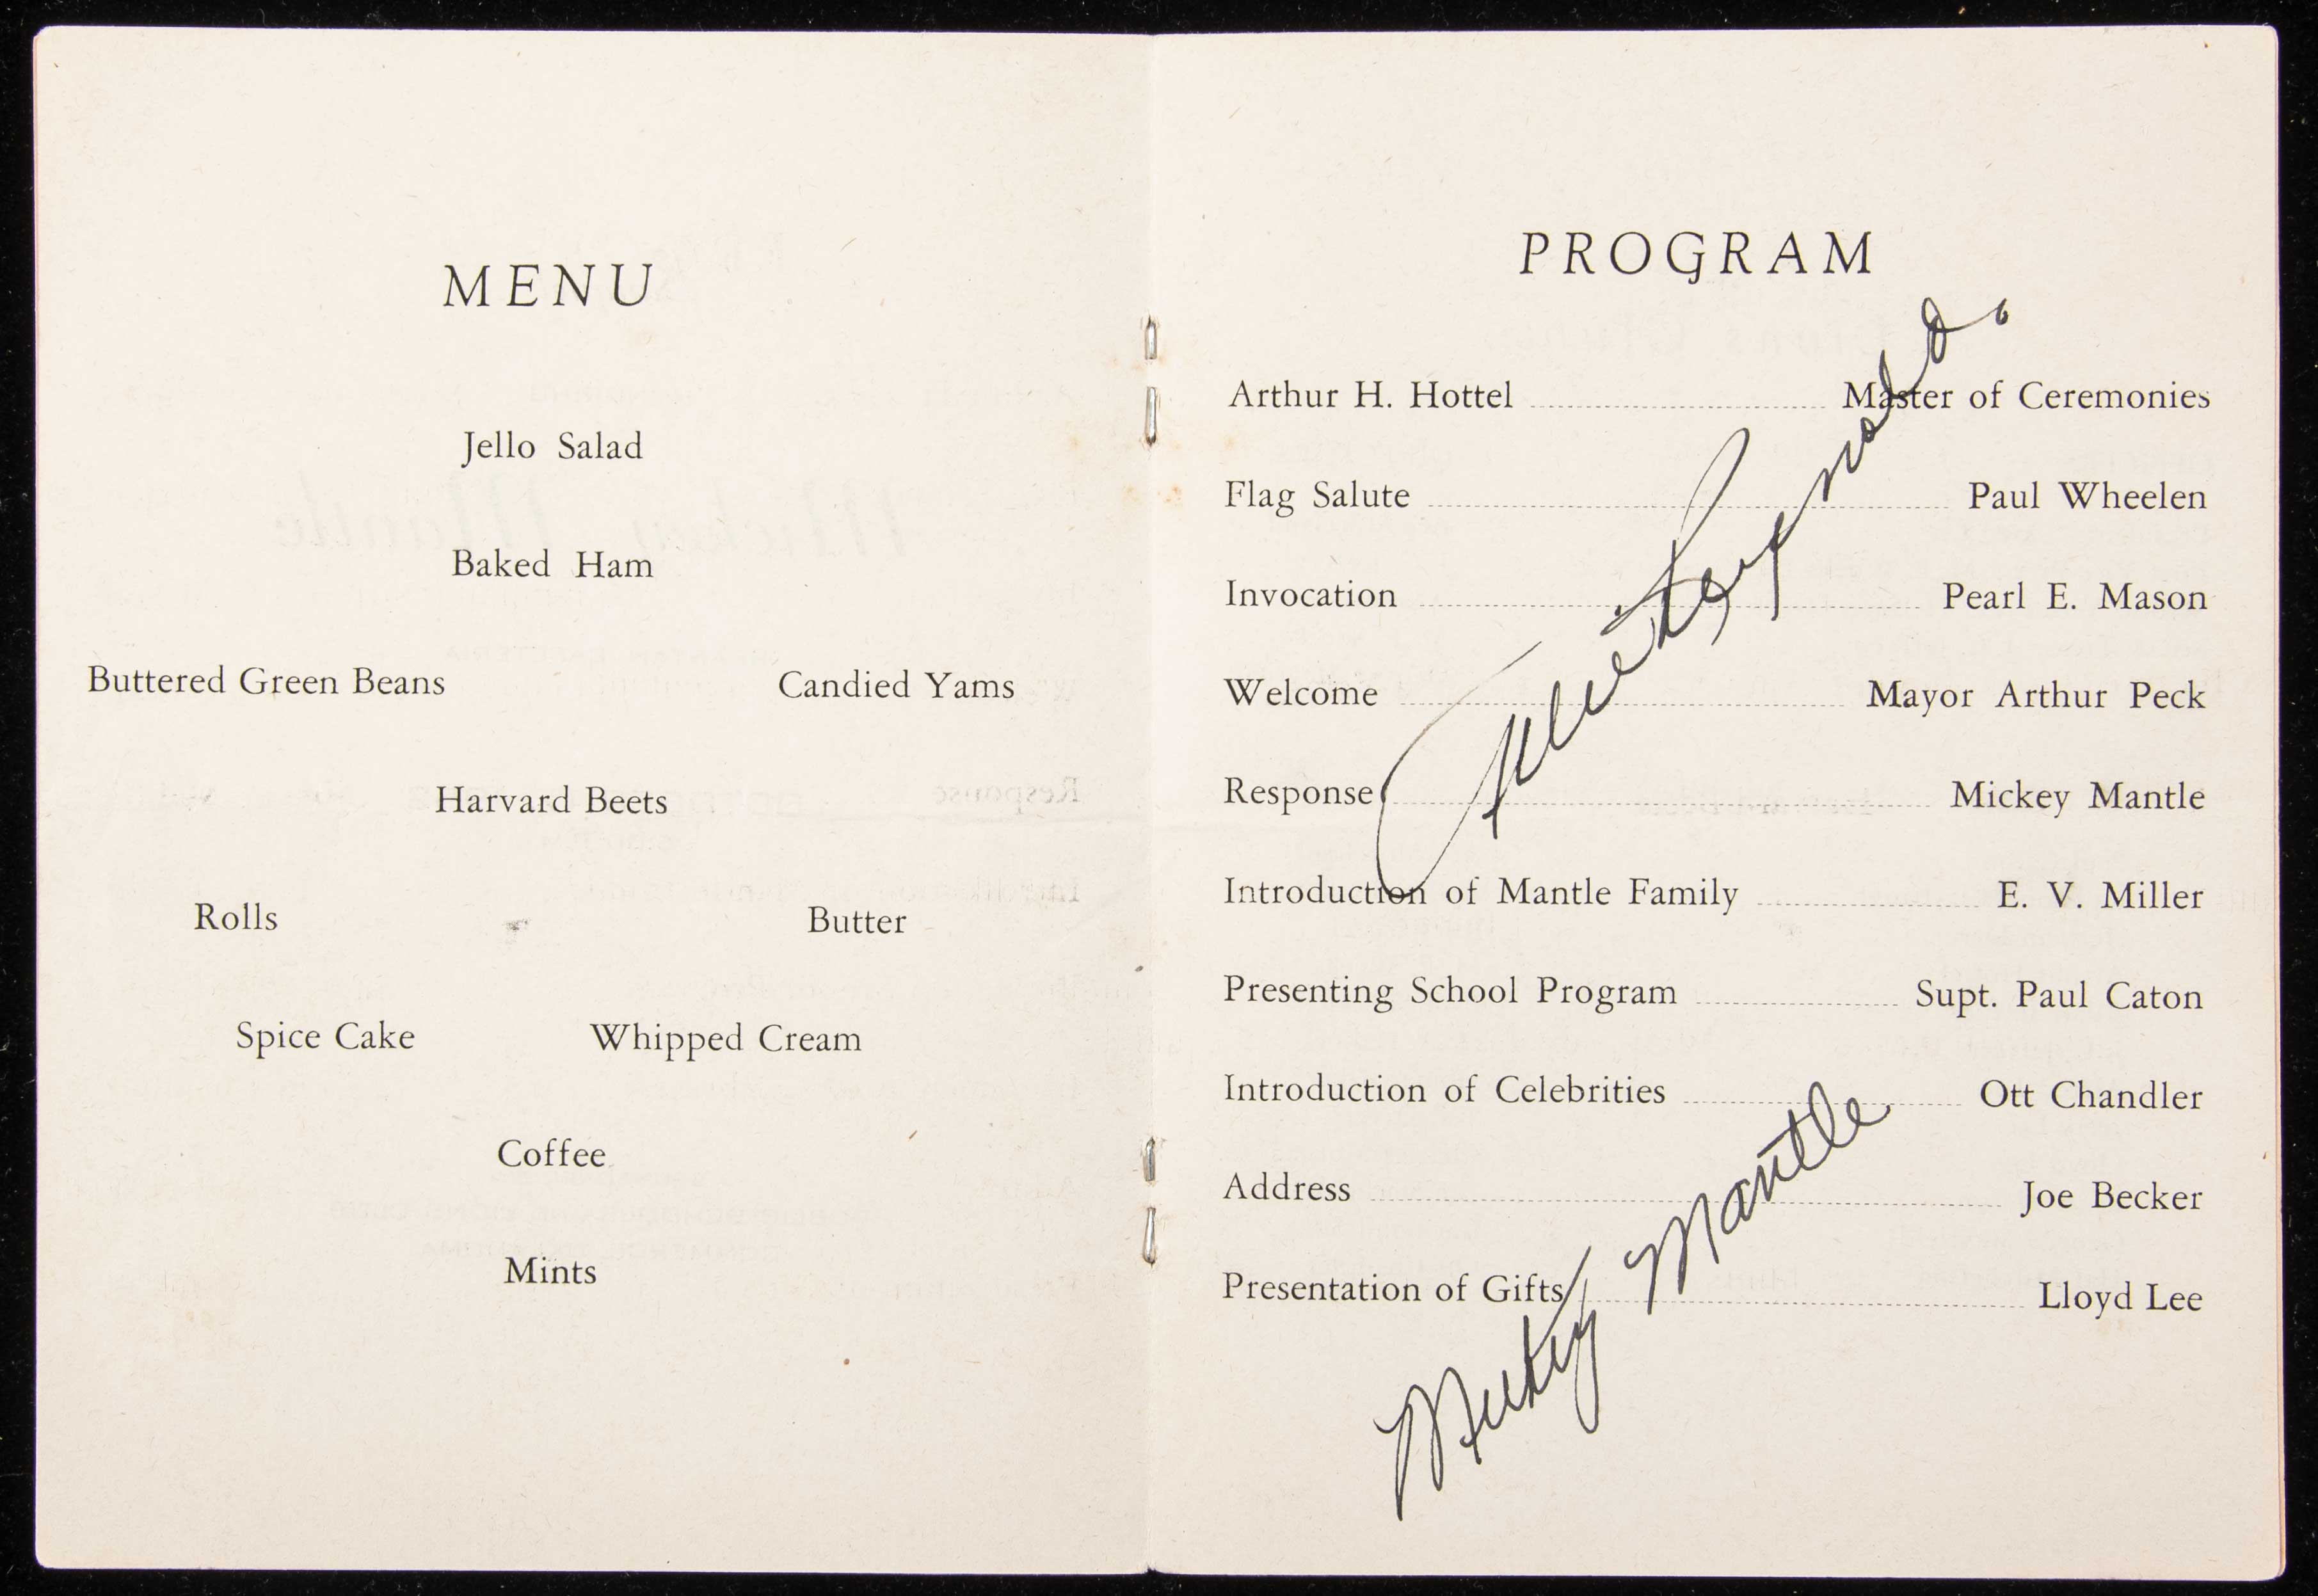 MENU
Jello Salad
Baked Ham
Buttered Green Beans Candied Yams
Harvard Beets
Rolls Butter
Spice Cake Whipped Cream
Coffee
Mints
PROGRAM
Arthur H. Hottel Master of Ceremonies
Flag Salute Paul Wheelen
Invocation Pearl E. Mason
Welcome Mayor Arthur Peck
Response Mickey Mantle
Introduction of Mantle Family E. V. Miller
Presenting School Program Supt. Paul Caton
Introduction of Celebrities Ott Chandler
Address Joe Becker
Presentation of Gifts Lloyd Lee
Allie Reynolds
Mickey Mantle